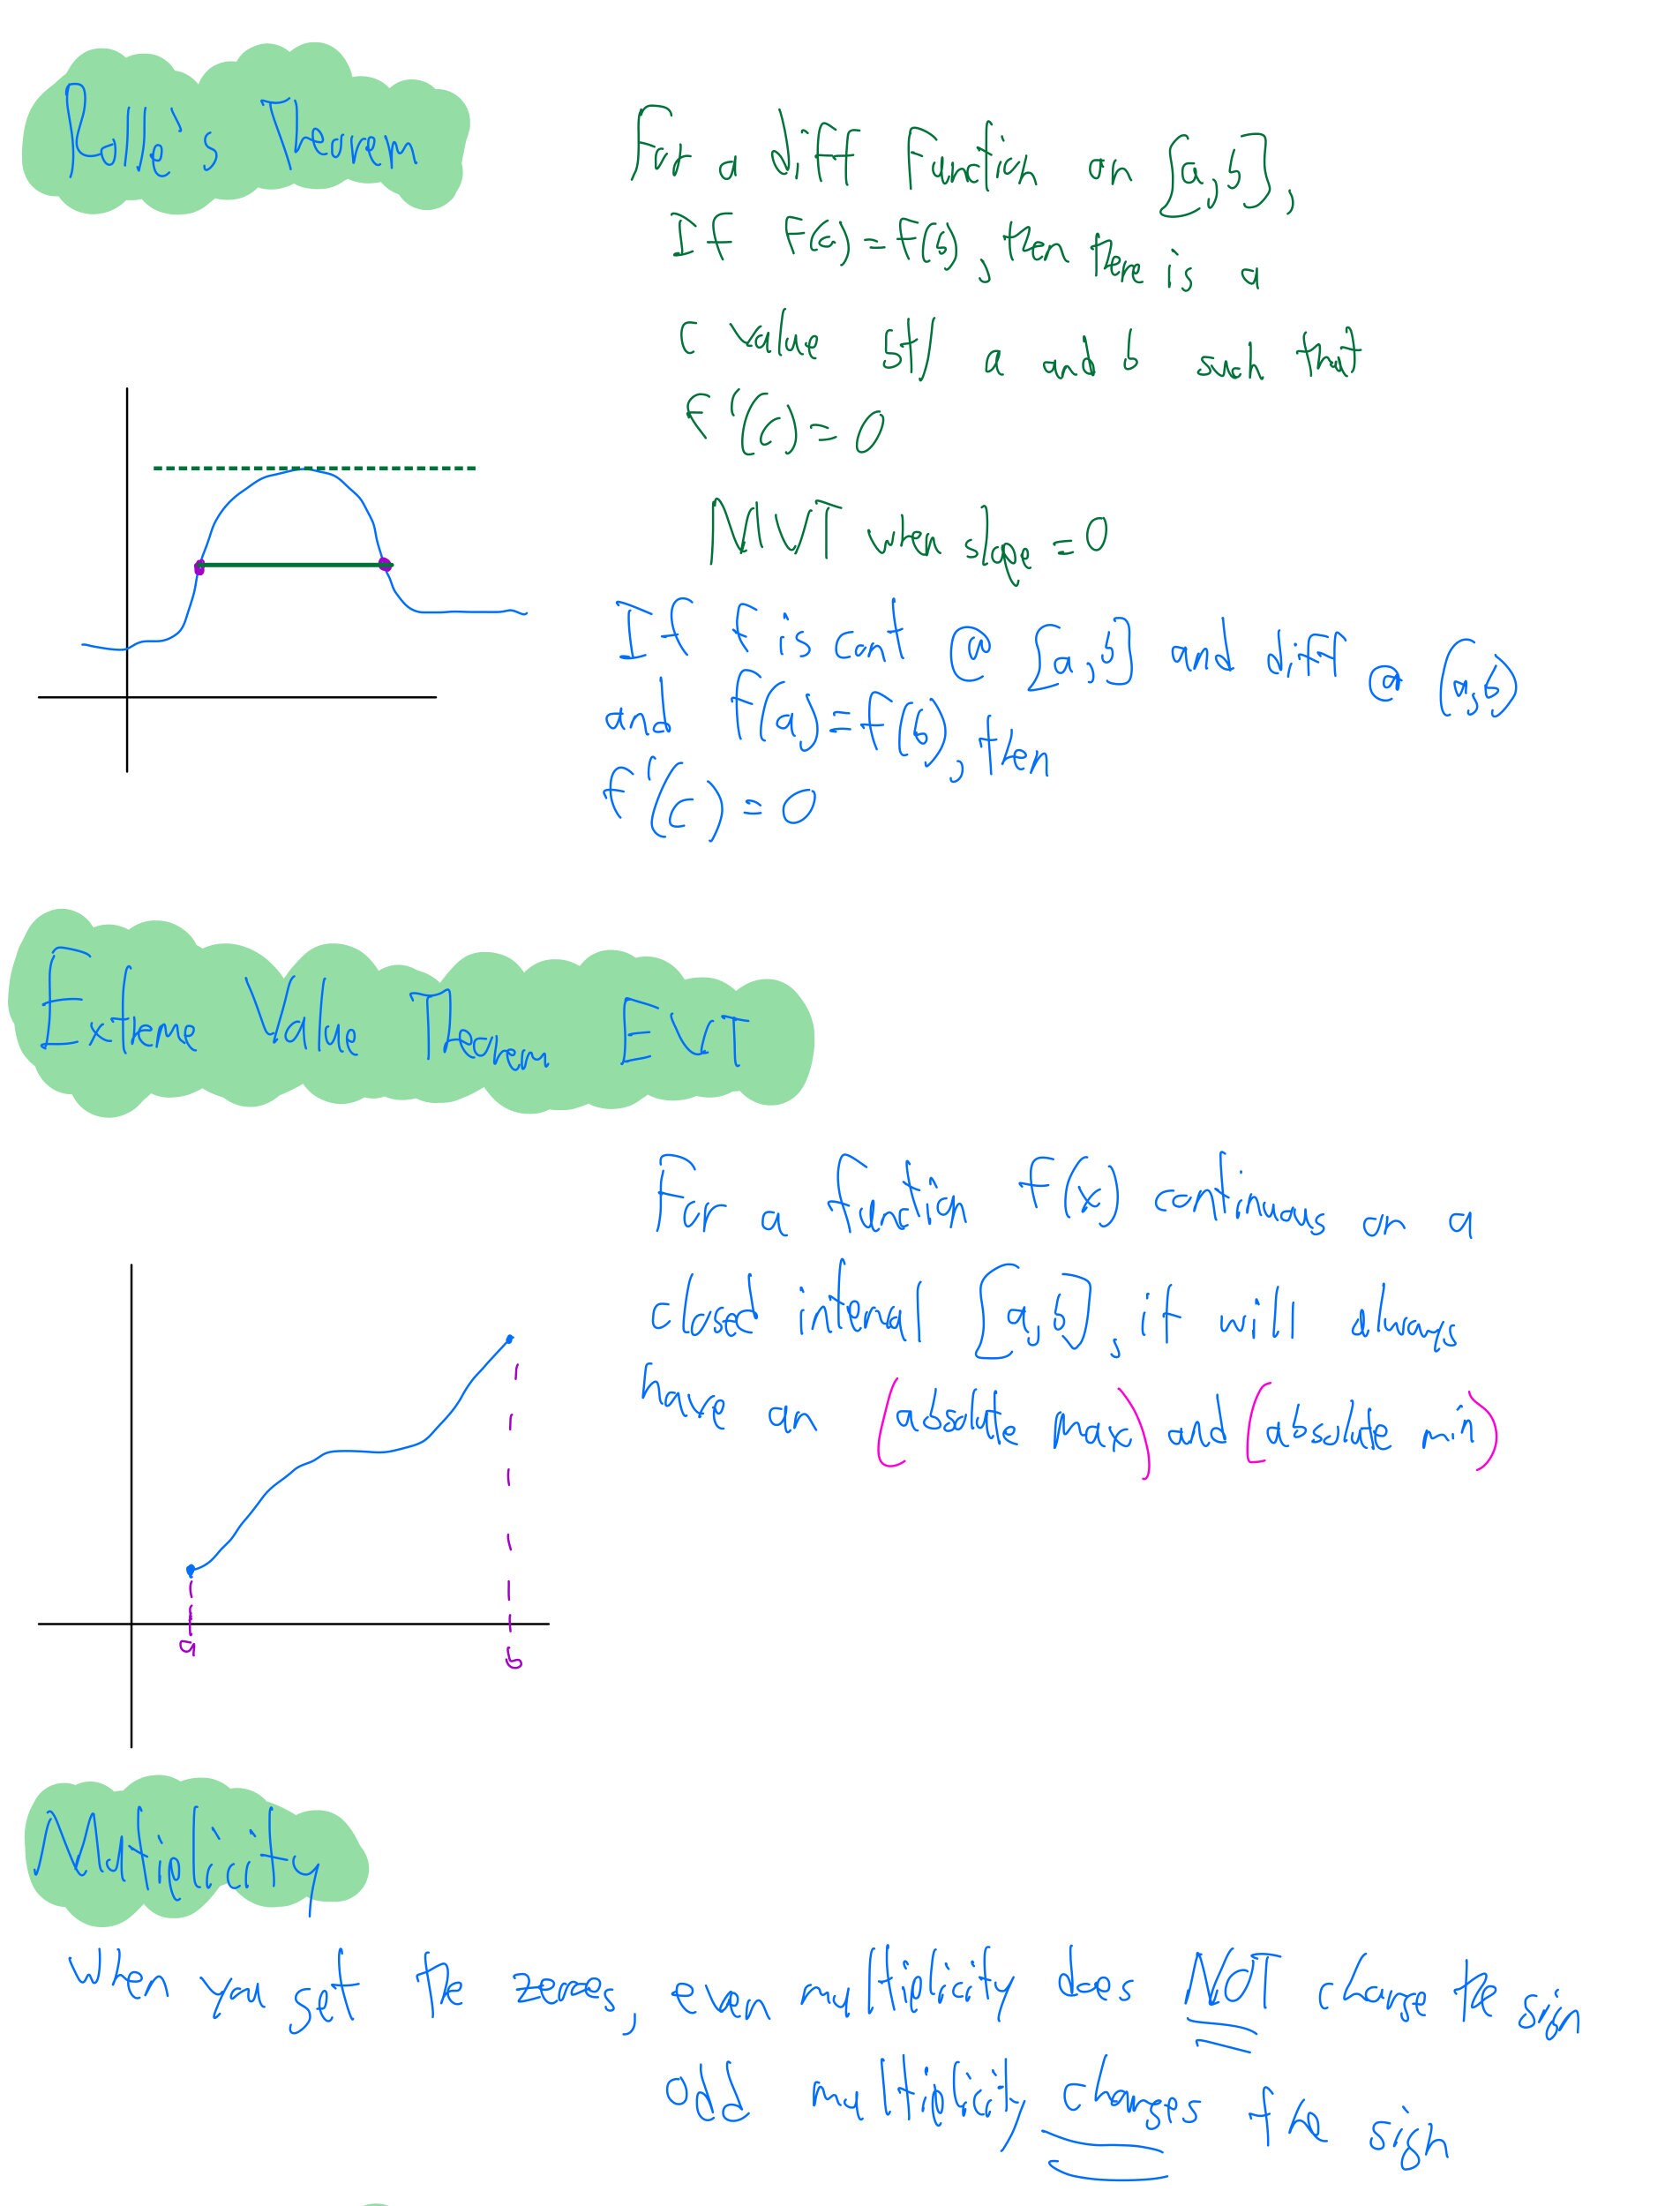 Rolle's Theorem
For a diff function on [a,b],
If f(a)=f(b), then there is a
c value btw a and b such that
f'(c)=0
MVT when slope=0
If f is cont @ [a,b] and diff @ (a,b)
and f(a)=f(b), then
f'(c)=0
Extreme Value Theorem EVT
For a function f(x) continuous on a
closed interval [a,b], it will always
have an (absolute max) and (absolute min)
a b
Multiplicity
When you get the zeroes, even multiplicity does NOT change the sign
odd multiplicity changes the sign